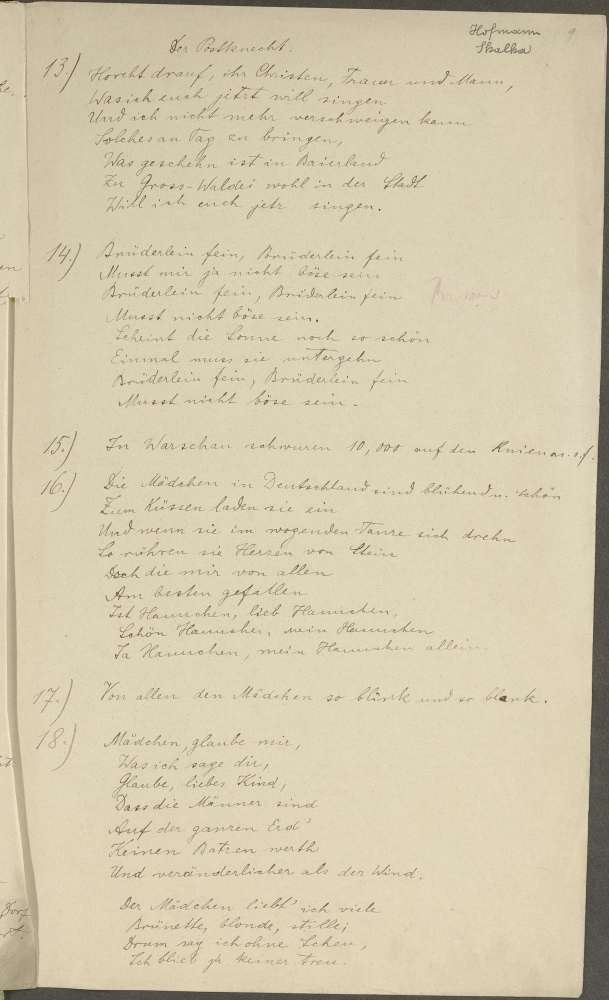 Hofmann 9
Skalka
Der Postknecht.
13.) Horcht drauf, ihr Christen, Frauer und Mann,
Was ich euch jetzt will singen
Und ich nicht mehr verschweigen kann
Solches an Tag zu bringen,
Was geschehn ist in Baierland
Zu Gross-Waldei wohl in der Stadt
Will ich euch jetz singen.
14.) Brüderlein fein, Brüderlein fein
Musst mir ja nicht böse sein
Brüderlein fein, Brüderlein fein
Musst nicht böse sein.
Scheint die Sonne noch so schön
Einmal muss sie untergehn
Brüderlein fein, Brüderlein fein
Musst nicht böse sein.
15.) In Warschau schwuren 10,000 auf den Knien u. s. f.
16.) Die Mädchen in Deutschland sind blühend u. schön
Zum Küssen laden sie ein
Und wenn sie im wogenden Tanze sich drehn
So rühren sie Herzen von Stein
Doch die mir von allen
Am besten gefallen
Ist Hannchen, lieb Hannchen,
Schön Hannchen, mein Hannchen
Ja Hannchen, mein Hannchen allein.
17.) Von allen den Mädchen so blink und so blank.
18.) Mädchen, glaube mir,
Was ich sage dir,
Glaube, liebes Kind,
Dass die Männer sind
Auf der ganzen Erd'
Keinen Batzen werth
Und veränderlicher als der Wind.
Der Mädchen liebt' ich viele
Brünette, blonde, stille;
Drum sag ich ohne Scheu,
Ich blieb ja keiner treu.